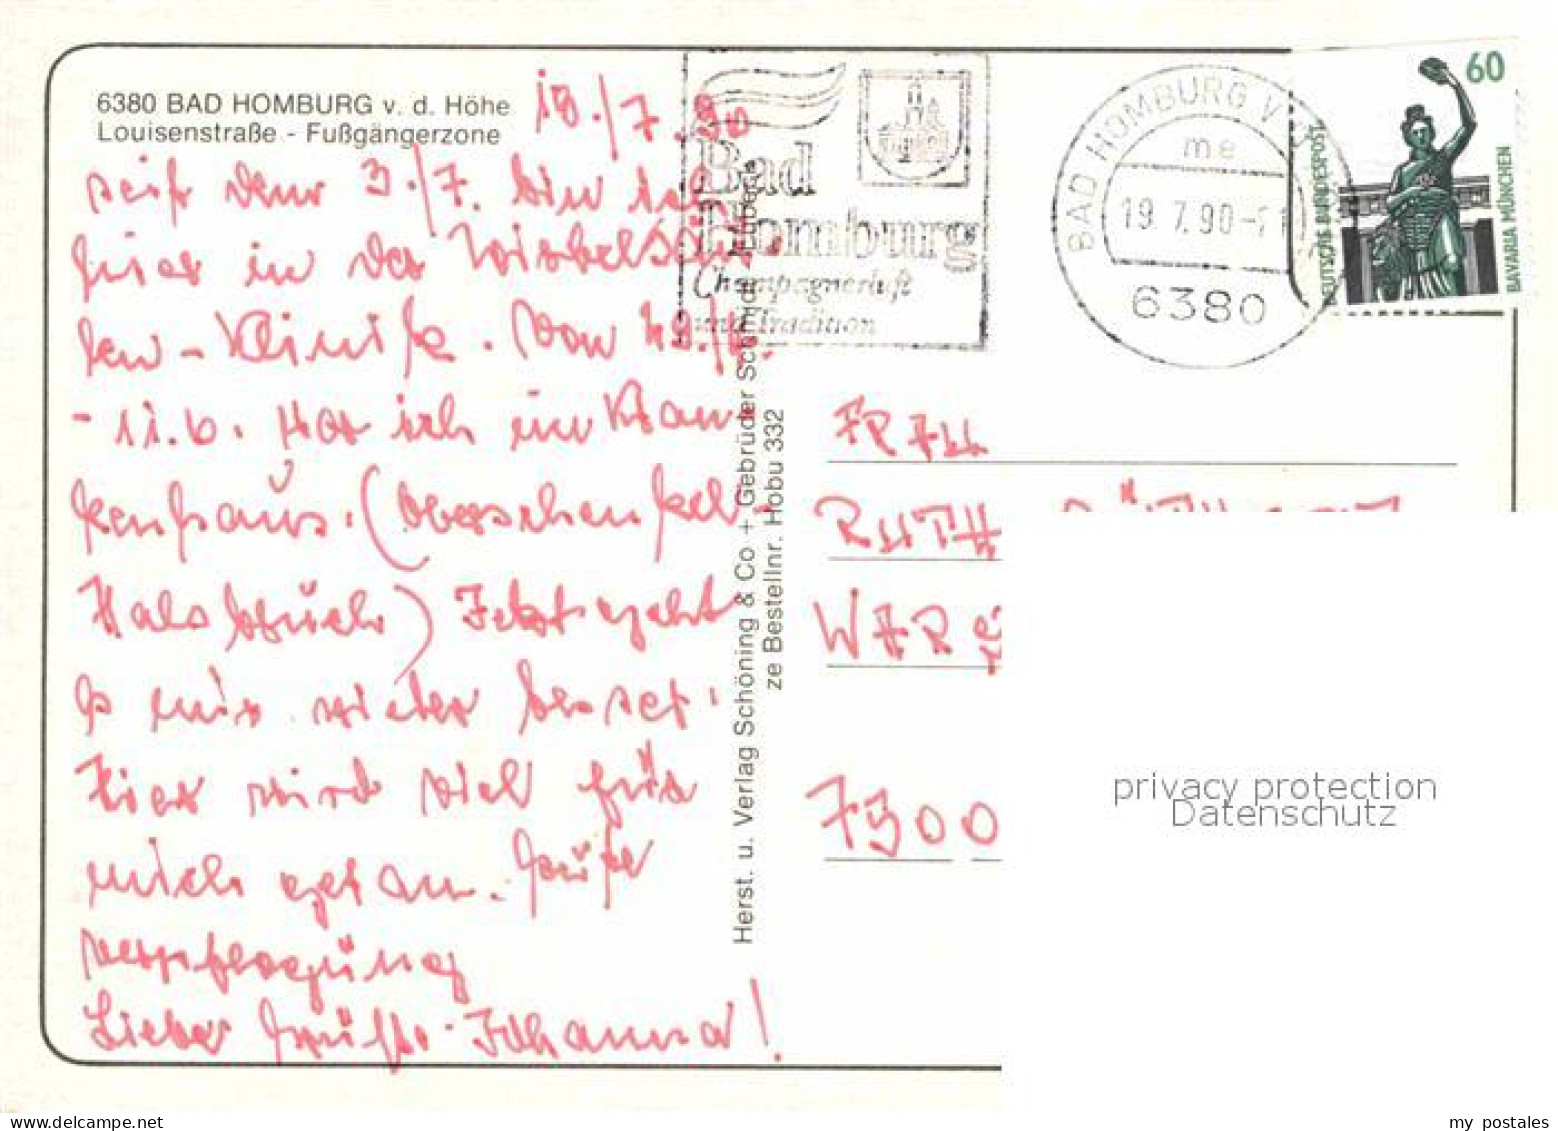 6380 BAD HOMBURG v. d. Höhe
Louisenstraße - Fußgängerzone
18./7.90
seit dem 3./7. bin ich
hier in der Wirbelsäu
len-Klinik. Vom
- 11.6. war ich im Kran
kenhaus. (Oberschenkel-
Halsbruch) Jetzt geht
s mir wieder besser.
Hier wird viel für
mich getan. Gute
verpflegung
Liebe Grüße Johanna!
Herst. u. Verlag Schöning & Co + Gebrüder Schmidt
ze Bestellnr. Hobu 332
Bad
Homburg
Champagnerluft
und Tradition
BAD HOMBURG V
me
19.7.90
6380
60
DEUTSCHE BUNDESPOST
BAVARIA MÜNCHEN
FRAU
RUTH
7300
privacy protection
Datenschutz
my postales